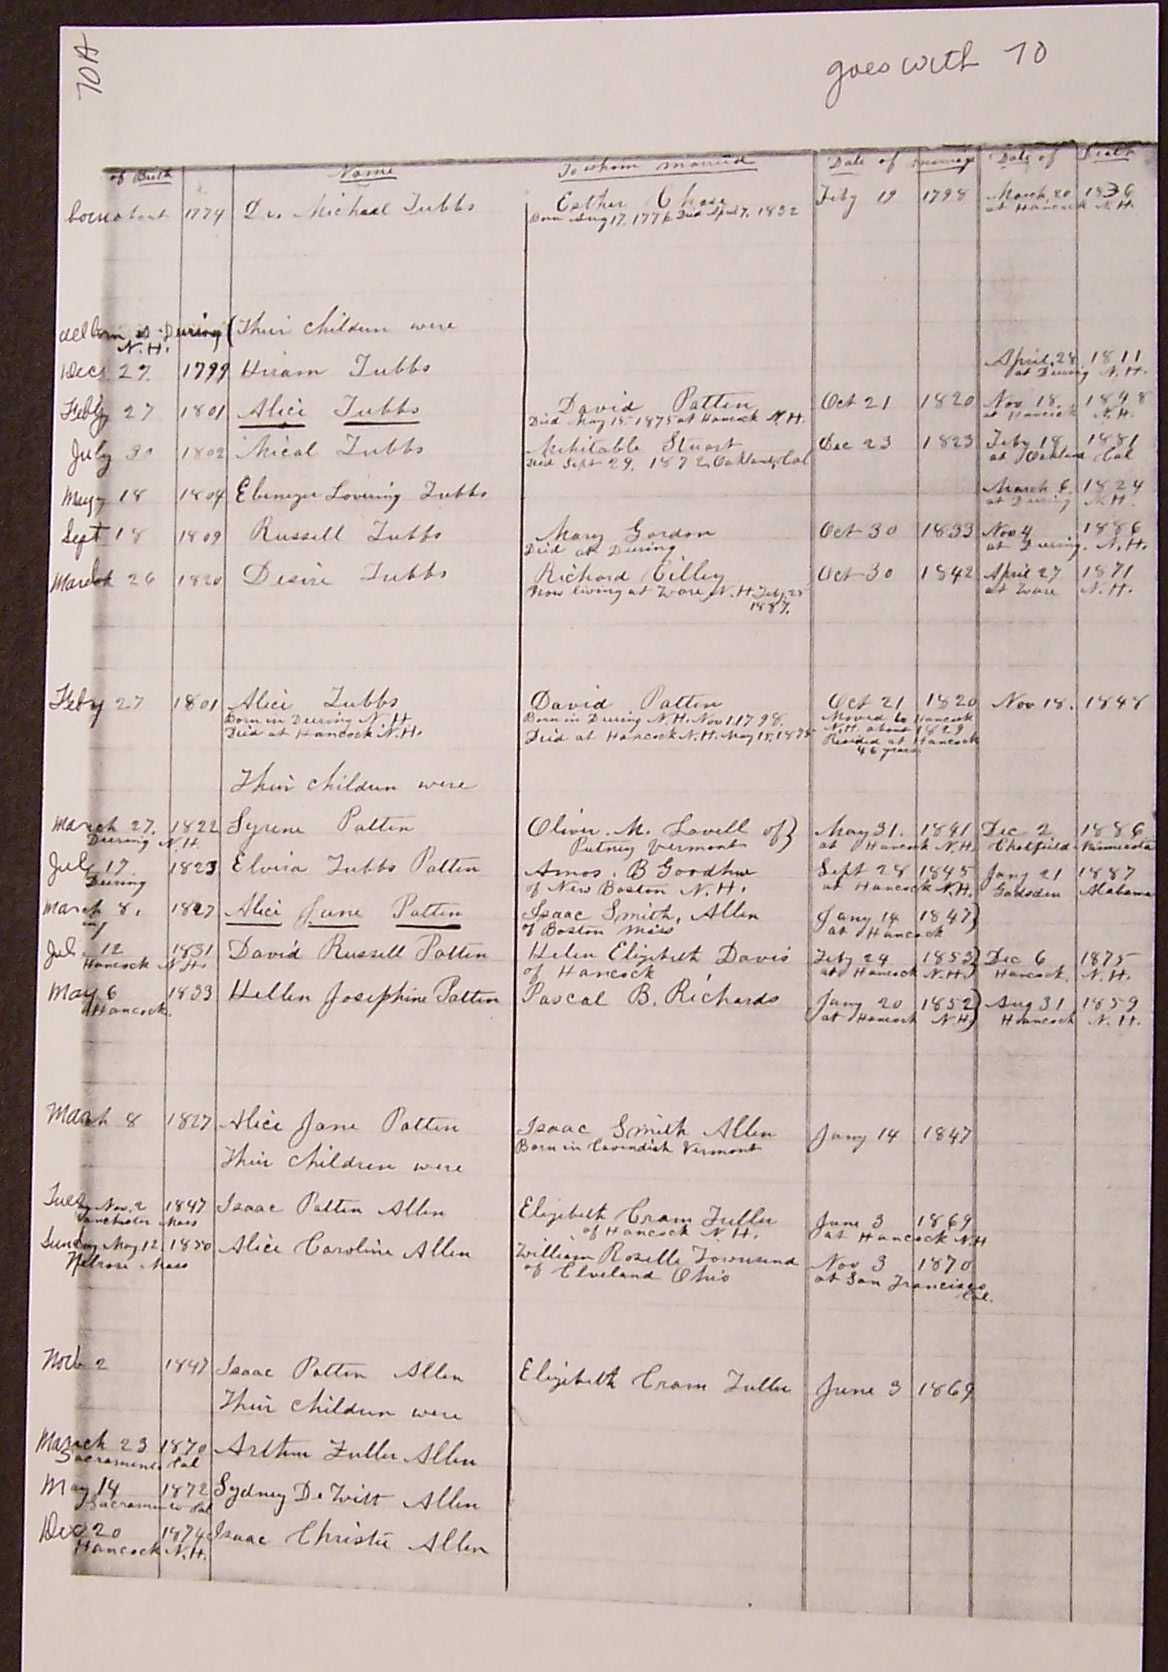 70A
goes with 70
of Birth Name To whom married Date of Marriage Date of Death
born about 1774 Dr. Michael Tubbs Esther Chase Feby 19 1798 March 20 1836
Born Aug 17, 1776 Died Apl 7, 1832 at Hancock N.H.
all born at Deering N.H. (Their children were
Dec 27. 1799 Hiram Tubbs April 28 1811
at Deering N.H.
Feby 27 1801 Alice Tubbs David Patten Oct 21 1820 Nov 18, 1848
Died May 15 1875 at Hancock N.H. at Hancock N.H.
July 30 1802 Mical Tubbs Mehitable Stuart Dec 23 1823 Feby 18, 1881
Died Sept 29, 1872, Oakland, Cal at Oakland Cal
May 18 1804 Ebenezer Lovering Tubbs March 6, 1824
at Deering N.H.
Sept 18 1809 Russell Tubbs Mary Gordon Oct 30 1833 Nov 4 1886
Died at Deering at Deering. N.H.
March 26 1820 Desire Tubbs Richard Cilley Oct 30 1842 April 27 1871
Now living at Ware, N.H. Feb, 25 at Ware N.H.
1887.
Feby 27 1801 Alice Tubbs David Patten Oct 21 1820 Nov 18. 1848
Born in Deering N.H. Born in Deering N.H. Nov 1 1798. Moved to Hancock
Died at Hancock N.H. Died at Hancock N.H. May 15, 1875 N.H. about 1829
Resided at Hancock
46 years
Their children were
March 27. 1822 Syrene Patten Oliver. M. Lovell of} May 31. 1841 Dec 2 1886
Deering N.H. Putney Vermont at Hancock N.H. Chatfield Minnesota
Jul 17 1823 Elvira Tubbs Patten Amos. B Goodhue Sept 28 1845 Jany 21 1887
Deering of New Boston N.H. at Hancock N.H. Gadsden Alabama
March 8, 1827 Alice Jane Patten Isaac Smith, Allen Jany 14 1847)
of Boston Mass at Hancock
Jul 12 1831 David Russell Patten Helen Elizabeth Davis Feby 24 1853) Dec 6 1875
Hancock N.H. of Hancock at Hancock N.H.) Hancock. N.H.
May 6 1833 Hellen Josephine Patten Pascal B. Richards Jany 20 1852) Aug 31 1859
Hancock. at Hancock N.H) Hancock N.H.
March 8 1827 Alice Jane Patten Isaac Smith Allen Jany 14 1847
Born in Cavendish Vermont
Their children were
Tuesday Nov. 2 1847 Isaac Patten Allen Elizabeth Cram Fuller June 3 1869
Mass of Hancock N.H. at Hancock N.H
Sunday May 12 1850 Alice Caroline Allen William Roselle Townsend Nov 3 1870
Melrose Mass of Cleveland Ohio at San Francisco
Cal.
Nov 2 1847 Isaac Patten Allen Elizabeth Cram Fuller June 3 1869
Their children were
March 23 1870 Arthur Fuller Allen
Sacramento Cal
May 14 1872 Sydney De Witt Allen
Sacramento Cal
Dec 20 1874 Isaac Christie Allen
Hancock N.H.